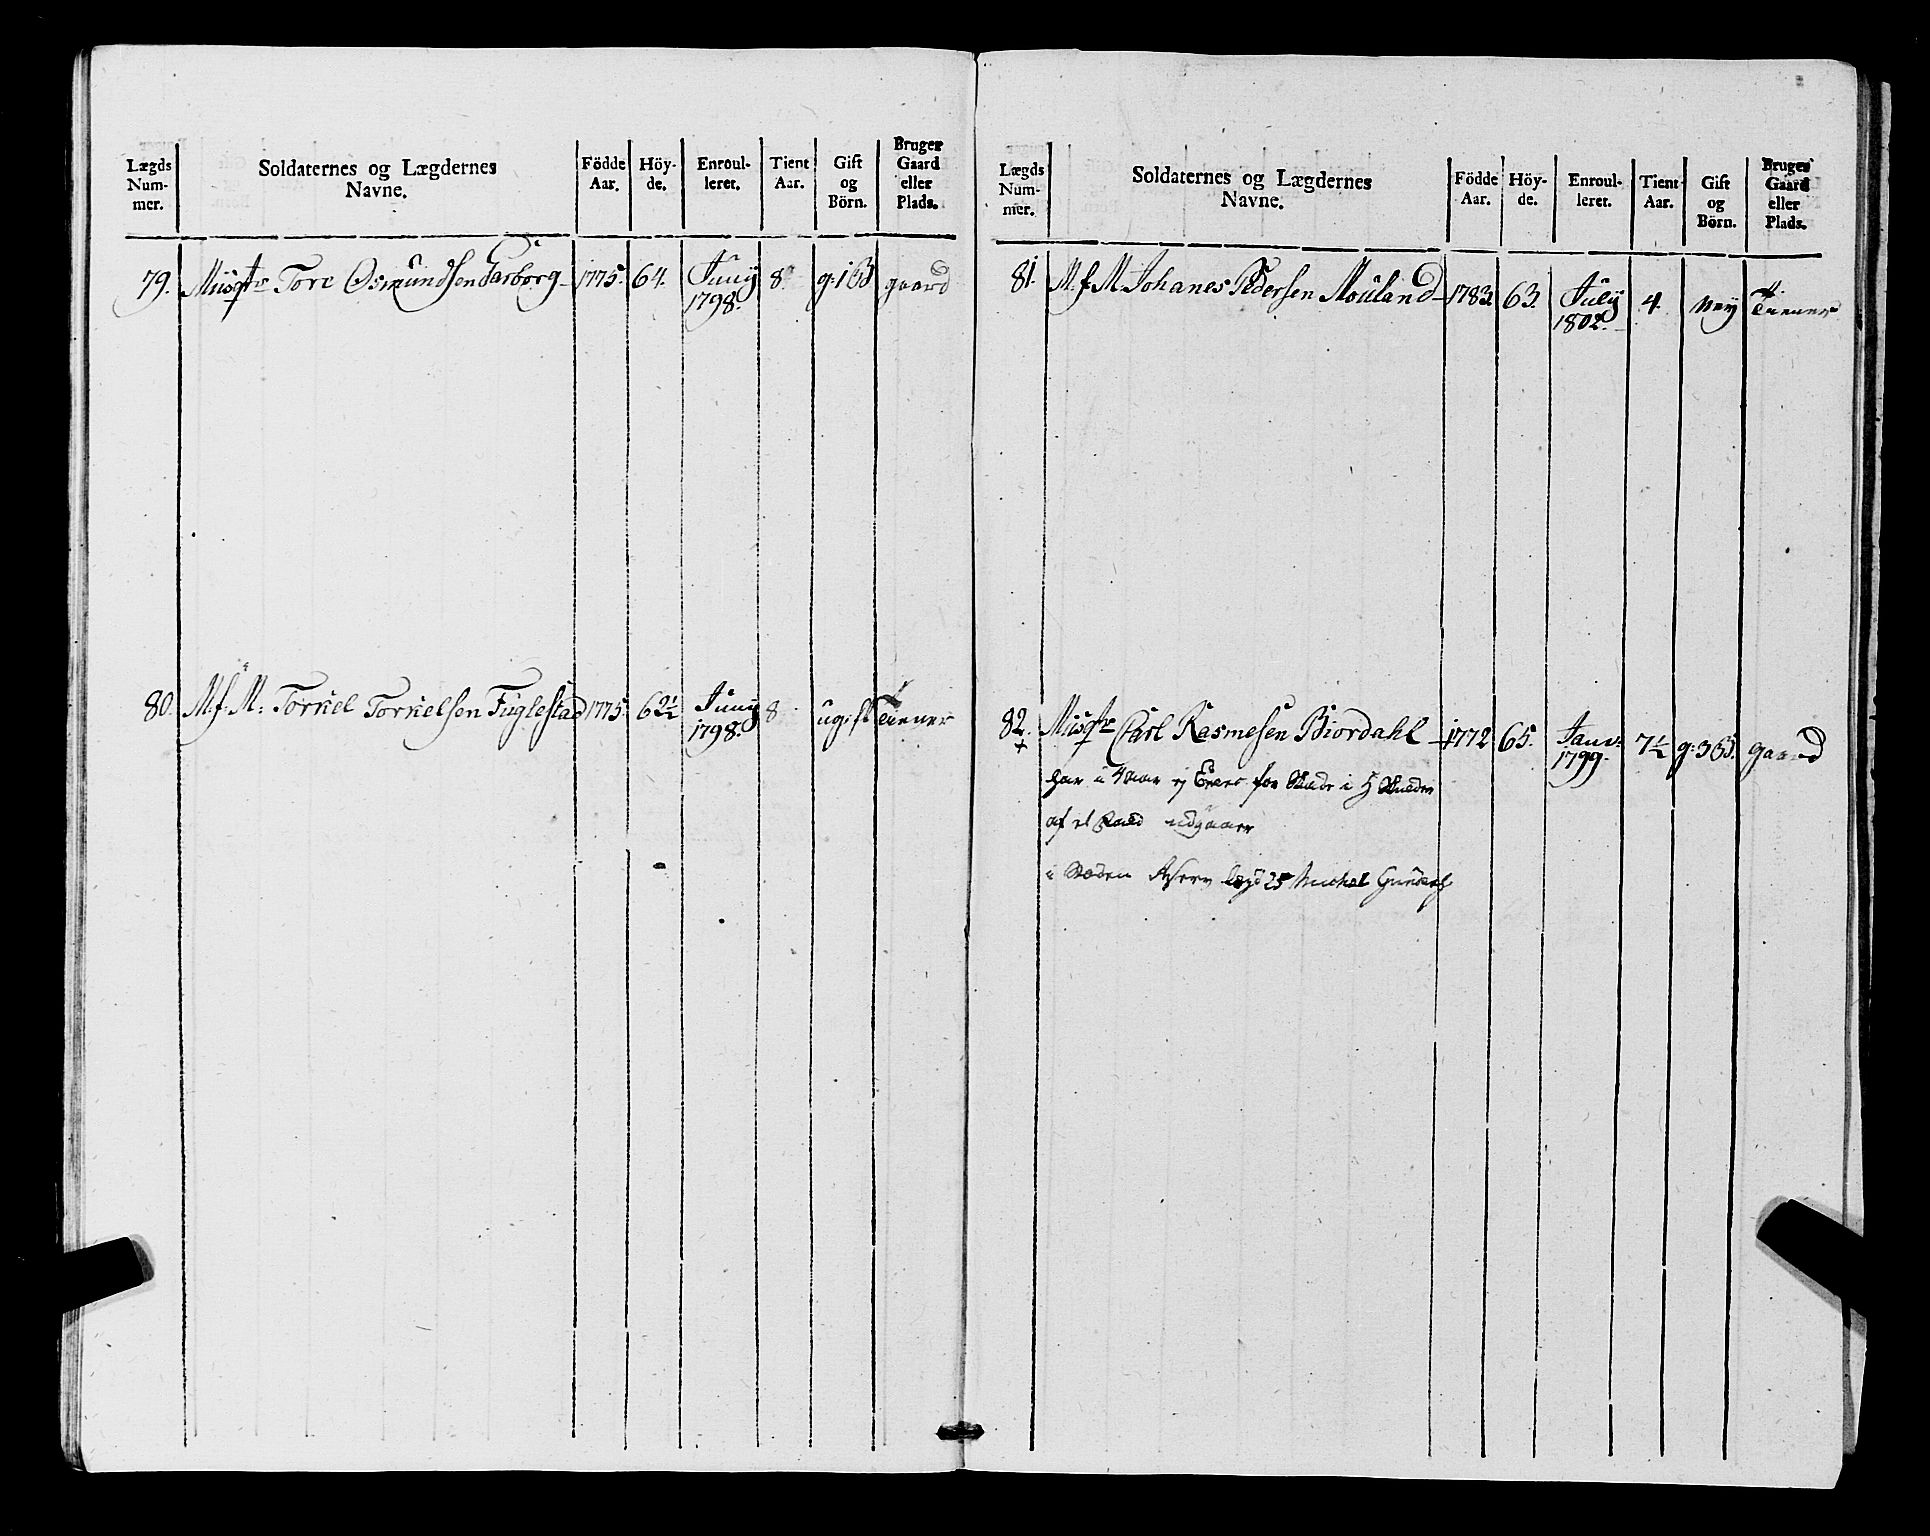 Lægds Num- mer.
Soldaternes og Lægdernes Navne.
Födde Aar.
Höy- de.
Enroul- leret.
Tient Aar.
Gift og Börn.
Bruger Gaard eller Plads.
79. Musqtr Tore Osmundsen Garborg 1775. 64. Juny 1798. 8 g: 1 B gaard
80. M: f: M: Torkiel Torkielsen Fuglestad 1775. 62½ Juny 1798. 8 ugift Tiener
Lægds Num- mer.
Soldaternes og Lægdernes Navne.
Födde Aar.
Höy- de.
Enroul- leret.
Tient Aar.
Gift og Börn.
Bruger Gaard eller Plads.
81. M. f. M. Johanes Pedersen Mouland 1783. 63. July 1802. 4. Ney Tiener
82. Musqtr Carl Rasmesen Biordahl 1772 65. Janv: 1799. 7½ g: 3 B. gaard
har i 4 aar ej Exers for Skade i H Skulder
af et udgaaer
i Steden Reserv lægd 25 Michel